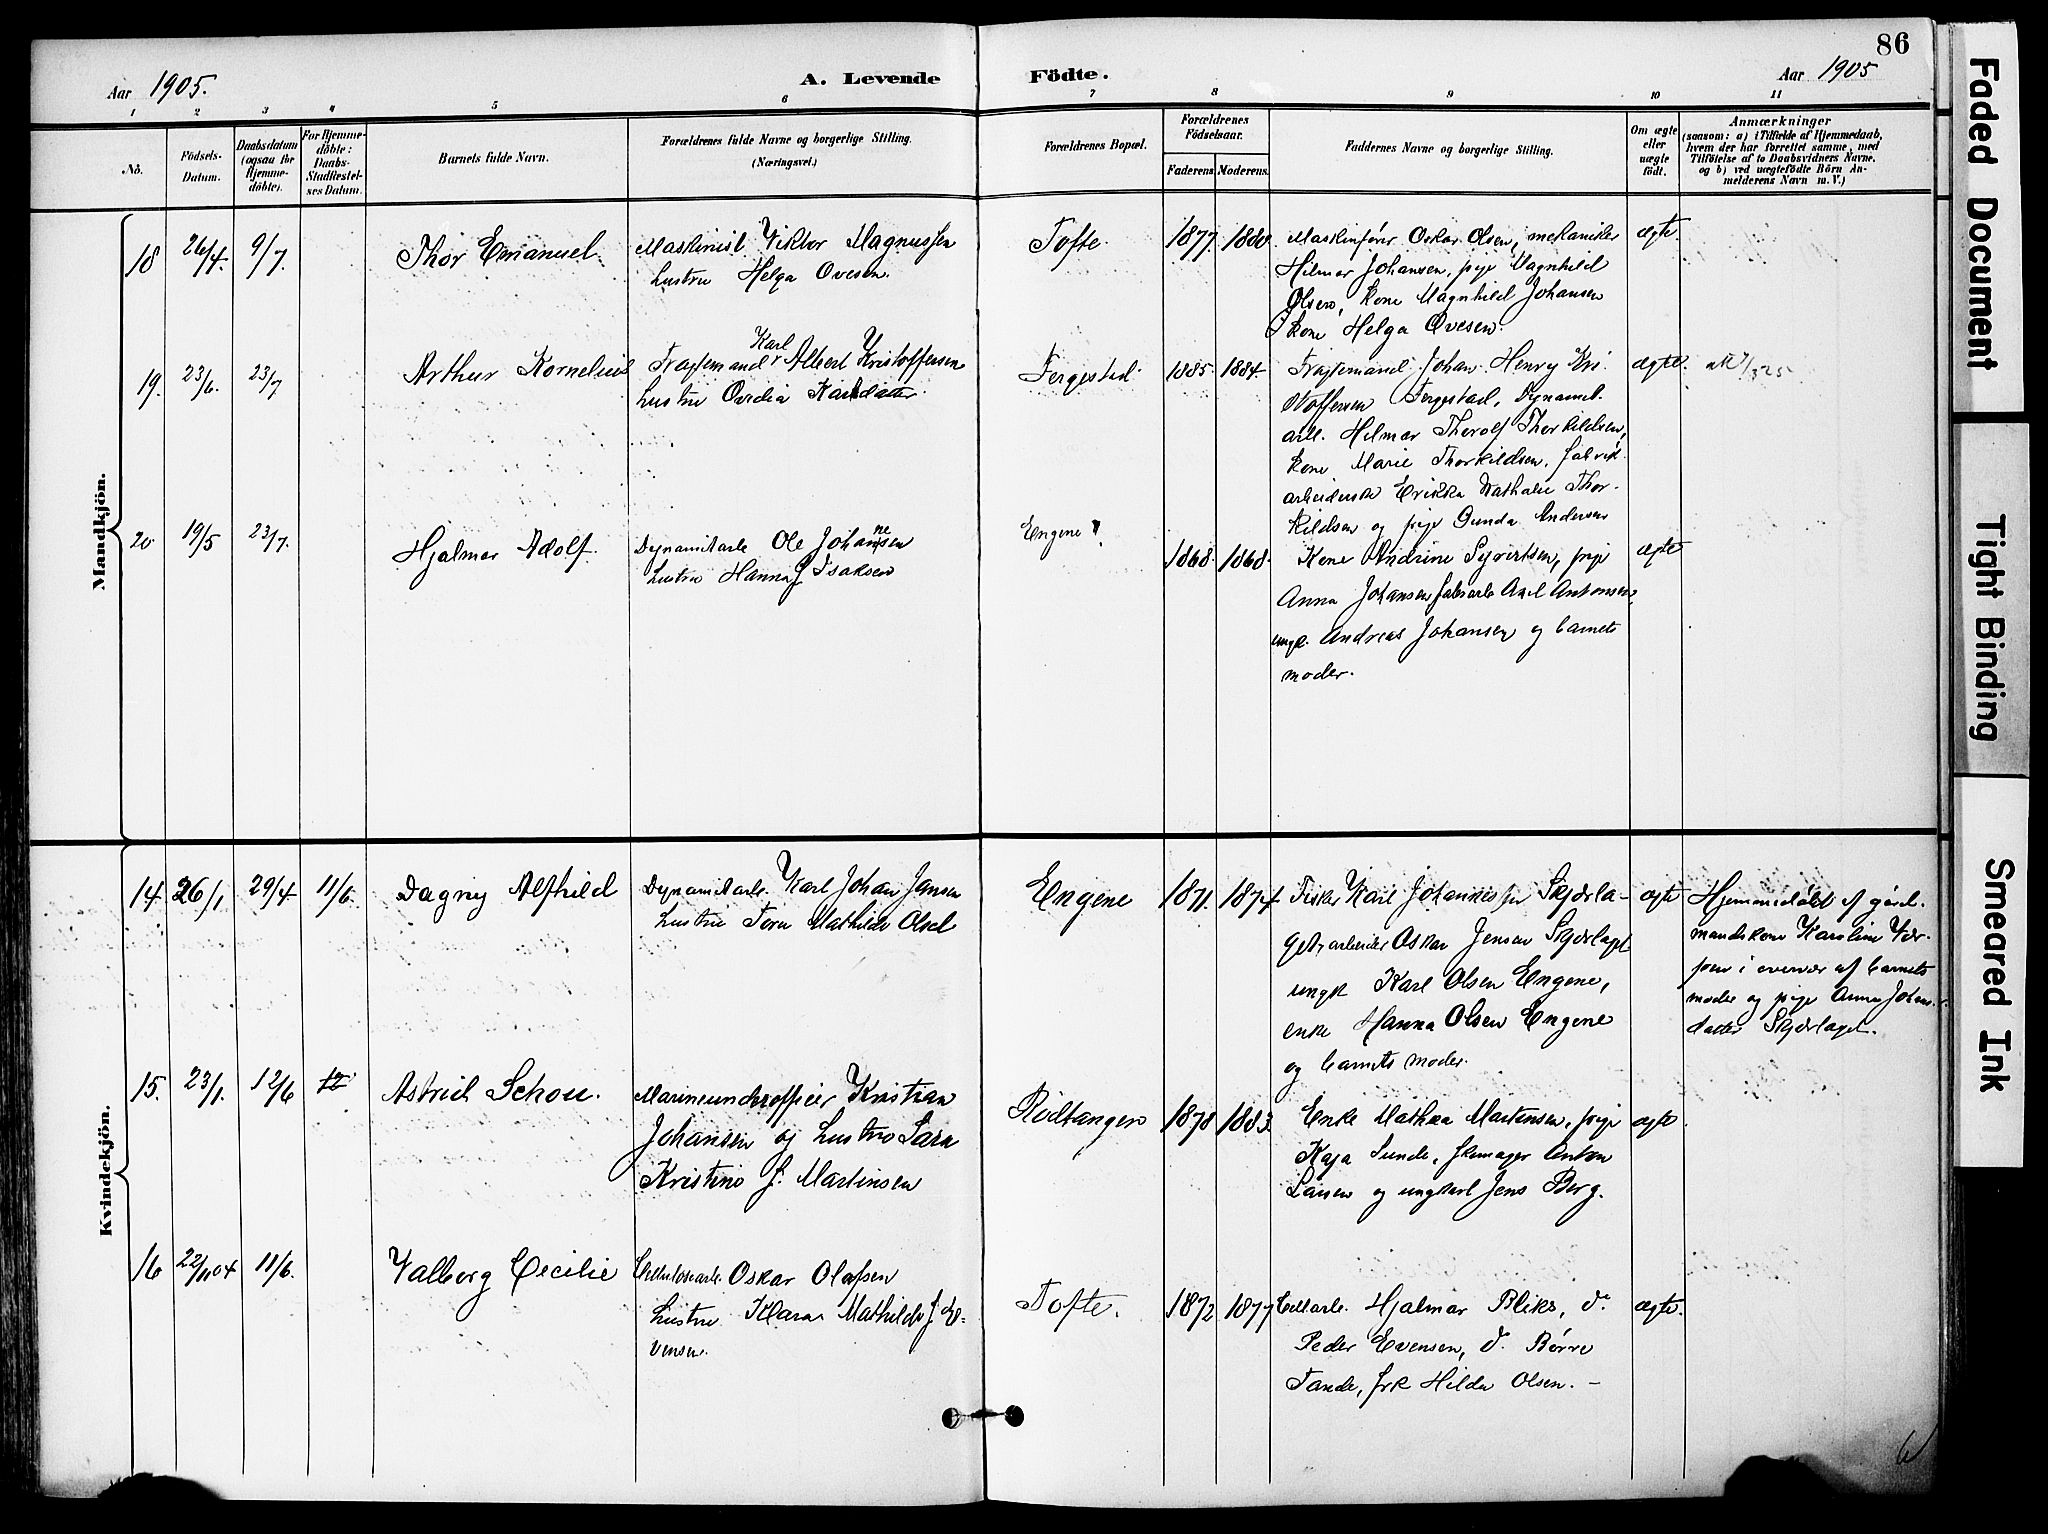 86
Aar 1905.
A. Levende
Födte.
Aar 1905
1 2 3 4 5 6 7 8 9 10 11
No.
Födsels-
Datum.
Daabsdatum
(ogsaa for
Hjemme-
döbte).
For Hjemme-
döbte:
Daabs-
Stadfæstel-
ses Datum.
Barnets fulde Navn.
Forældrenes fulde Navne og borgerlige Stilling.
(Næringsvei.)
Forældrenes Bopæl.
Forældrenes
Födselsaar.
Faderens.
Moderens.
Faddernes Navne og borgerlige Stilling.
Om ægte
eller
uægte
födt.
Anmærkninger
(saasom: a) i Tilfælde af Hjemmedaab,
hvem der har forrettet samme, med
Tilföielse af to Daabsvidners Navne.
og b) ved uægtefödte Börn An-
melderens Navn m. V.)
Mandkjön.
18 26/4. 9/7. Thor Emanuel
Maskinist Viktor Magnussen
hustru Helga Ovesen.
Tofte. 1877. 1880.
Maskinfører Oskar Olsen, mekaniker
Hilmar Johansen, pige Magnhild
Olsen, kone Magnhild Johansen
kone Helga Ovesen.
ægte.
19. 23/6. 23/7 Arthur Kornelius
Karl
Fragtemand Albert Kristoffersen
hustru Ovedia Karldatter.
Fergestad. 1885. 1884.
Fragtemand Johan Henry Kri-
stoffersen Fergestad, Dynamit-
arb. Hilmar Thorolf Thorkildsen,
kone Marie Thorkildsen, fabrik-
arbeiderske Erikka Nathalie Thor-
kildsen og pige Gunda Andersen
ægte.
20 19/5 23/7. Hjalmar Adolf.
Dynamitarb. Ole Johannesen
hustru Hanna J. Isaksen
Engene 1868. 1868.
Kone Andrine Syvertsen, pige
Anna Johansen, fabrarb. Axel Antonsen,
ungk. Andreas Johansen og barnets
moder.
ægte
Kvindekjön.
14 26/1 29/4 11/6. Dagny Alfhild
Dynamitarb. Karl Johan Jensen
hustru Tora Mathilde Olsd
Engene 1871. 1874
Fisker Karl Johannessen Skjærla-
get, arbeider Oskar Jensen Skjærlaget
ungk Karl Olsen Engene,
enke Hanna Olsen Engene
og barnets moder.
ægte
Hjemmedöbt af gård-
mandskone Karoline
i overvær af barnets
moder og pige Anna Johans-
datter Skjærlaget.
15. 23/1. 12/6 12 Astrid Schou.
Marineunderofficer Kristian
Johansen og hustru Sara
Kristine J. Martinsen
Rödtangen 1878 1883
Enke Mathea Martensen, pige
Kaja Sunde, skomager Anton
Larsen og ungkarl Jens Berg.
ægte
16 22/11 04 11/6. Valborg Cecilie
Cellulosearb. Oskar Olafsen
hustru Klara Mathilde J. E-
vensen.
Tofte. 1872 1877
Cellarb. Hjalmar Bliks, d.
Peder Evensen, d. Børre
Tande, frk Hilda Olsen. -
ægte.
Faded Document
Tight Binding
Smeared Ink